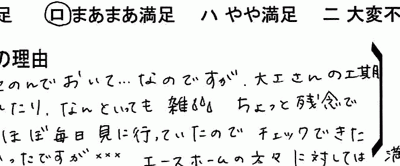 足 ロ まあまあ満足 ハ やや満足 ニ 大変不
の理由
のんでおいて…なのですが、大工さんの工期
たり、なんといっても 雑 ちょっと残念で
ほぼ毎日見に行っていたので チェックできた
ったですが××× エースホームの方々に対しては 満